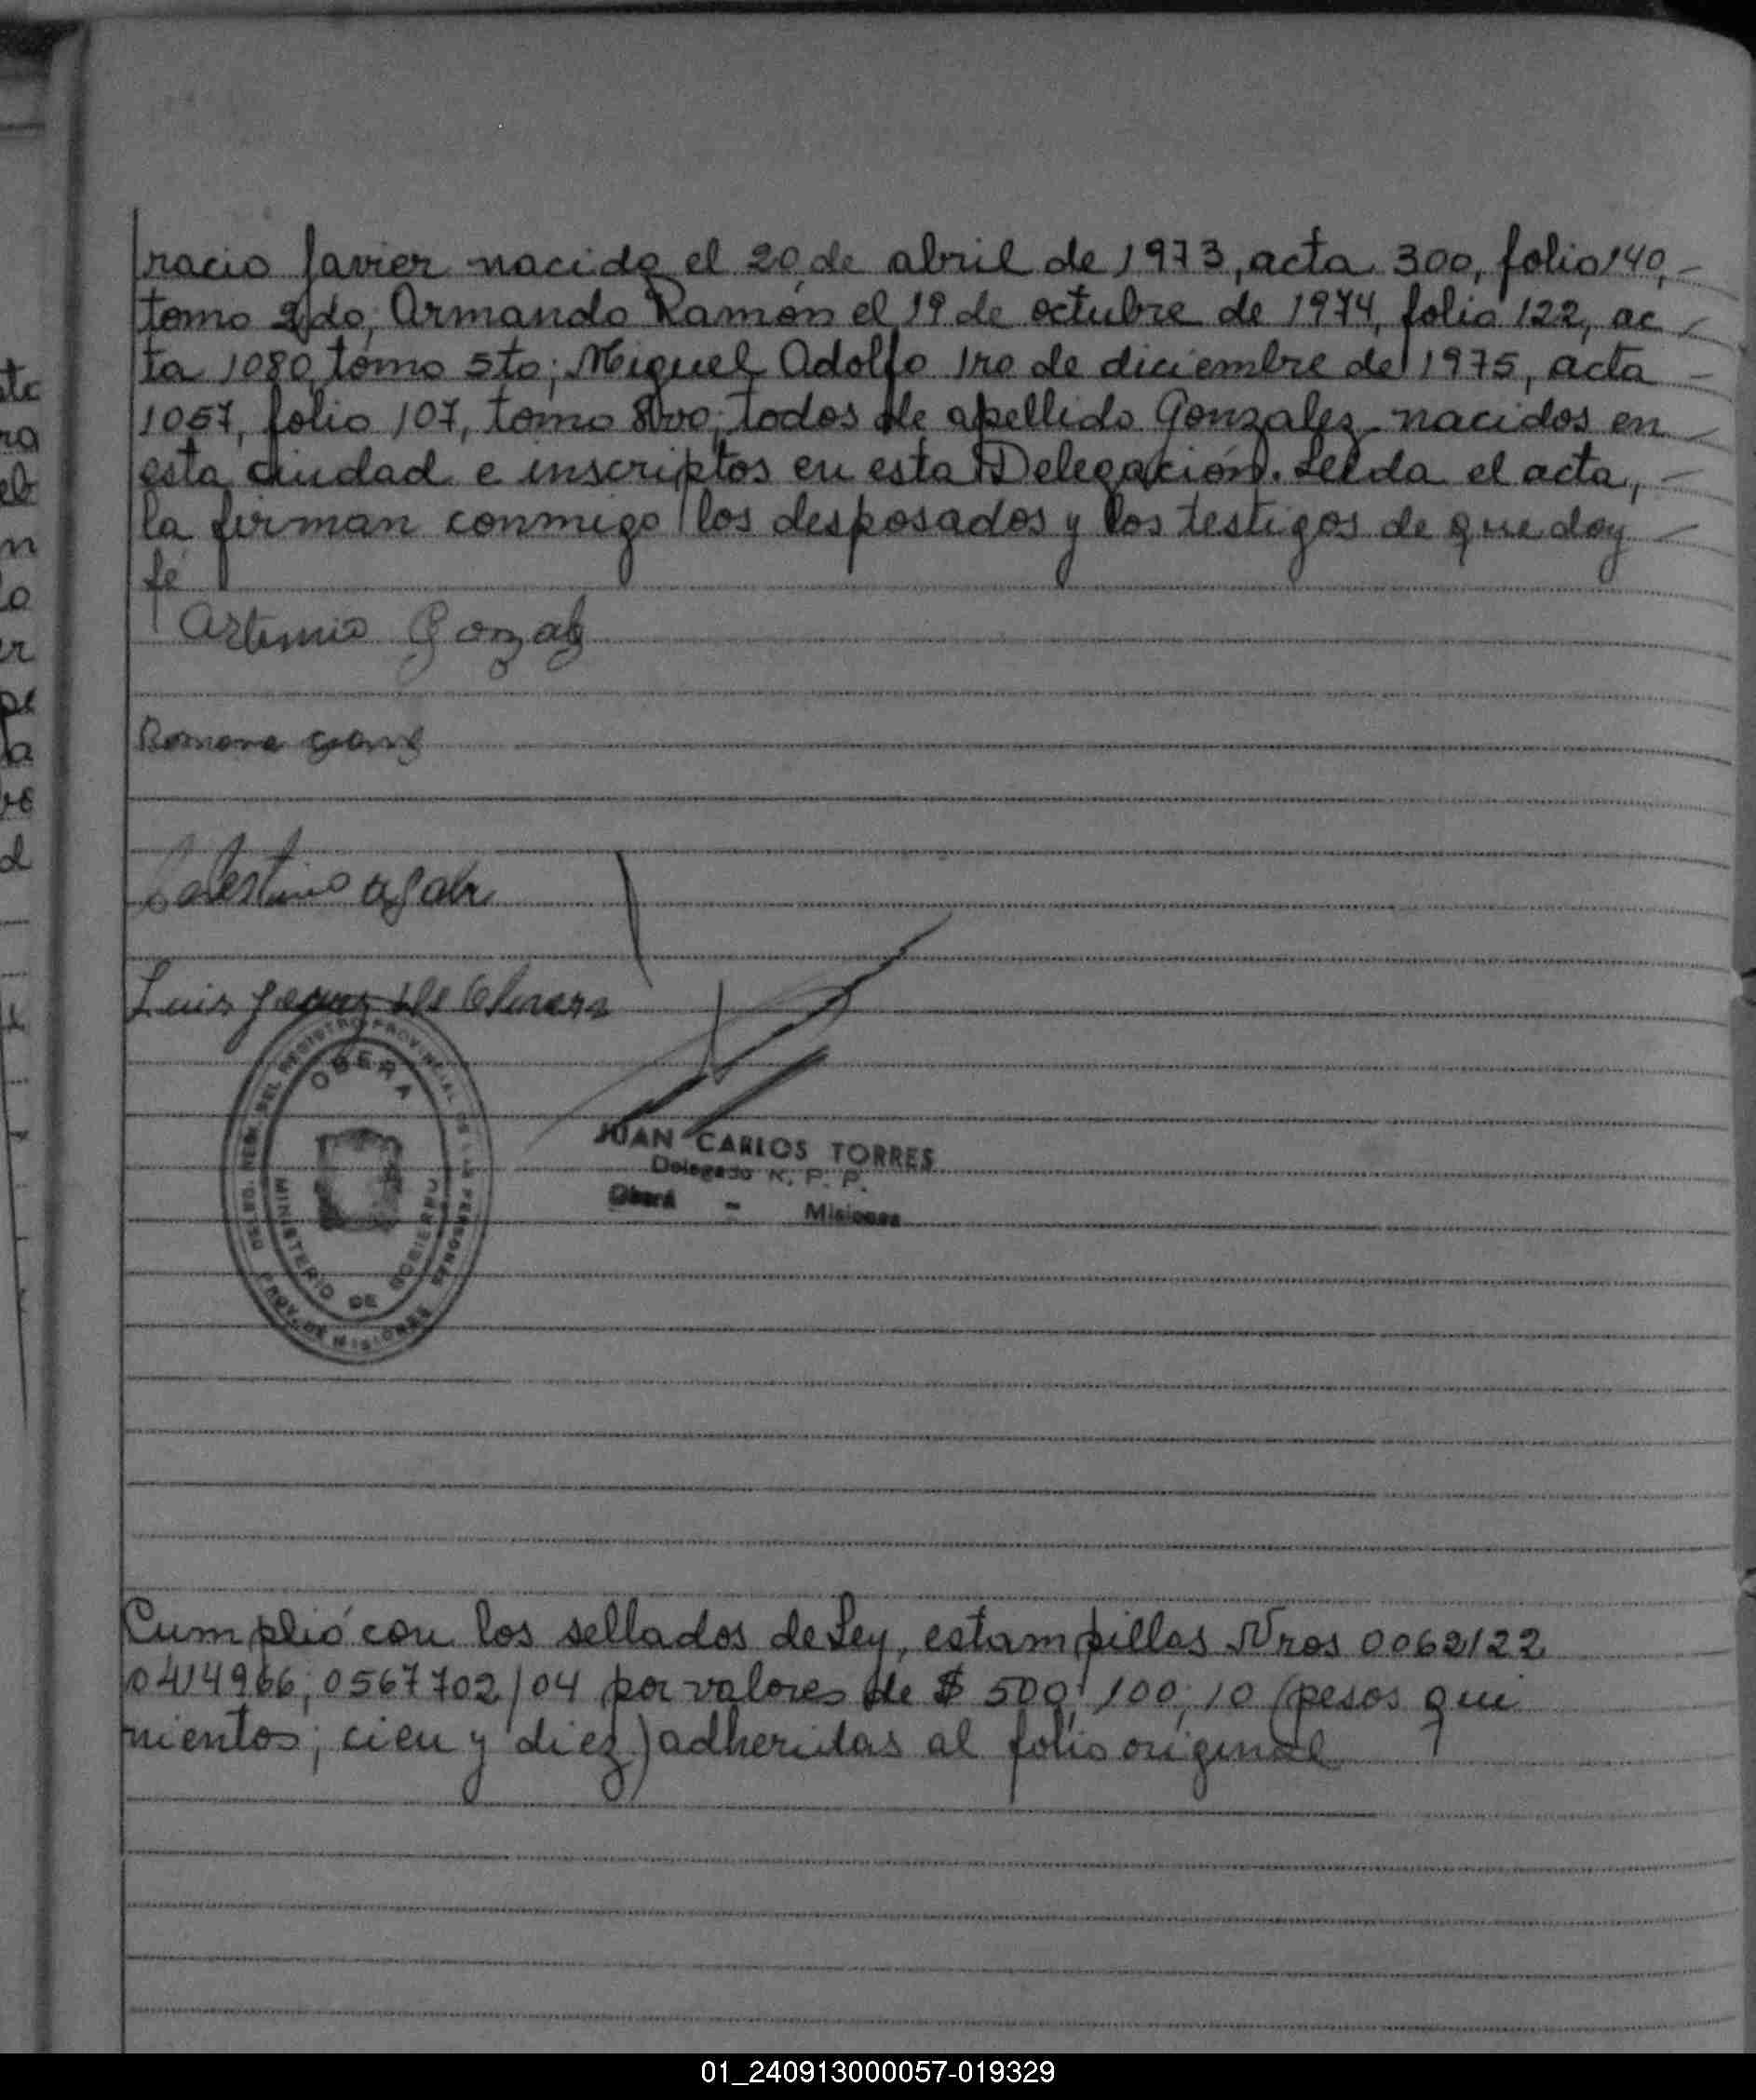 racio Javier nacido el 20 de abril de 1973, acta 300, folio 140, -
tomo 2do; Armando Ramón el 19 de octubre de 1974, folio 122, ac
ta 1080, tomo 5to; Miguel Adolfo 1ro de diciembre de 1975, acta -
1057, folio 107, tomo 8vo; todos de apellido Gonzalez nacidos en
esta ciudad e inscriptos en esta Delegación. Leida el acta, -
la firman conmigo los desposados y los testigos de que doy
fé
Artemio Gonzalz
Romana
Luis
DELEG. REG. DEL REGISTRO PROVINCIAL DE LAS PERSONAS
OBERA
MINISTERIO DE GOBIERNO
PROV. DE MISIONES
JUAN CARLOS TORRES
Delegado R. P. P.
Oberá - Misiones
Cumplió con los sellados de Ley, estampillas Nros 0062122
0414966; 0567702/04 por valores de $ 500; 100; 10 (pesos qui
nientos; cien y diez) adheridas al folio original
01_240913000057-019329